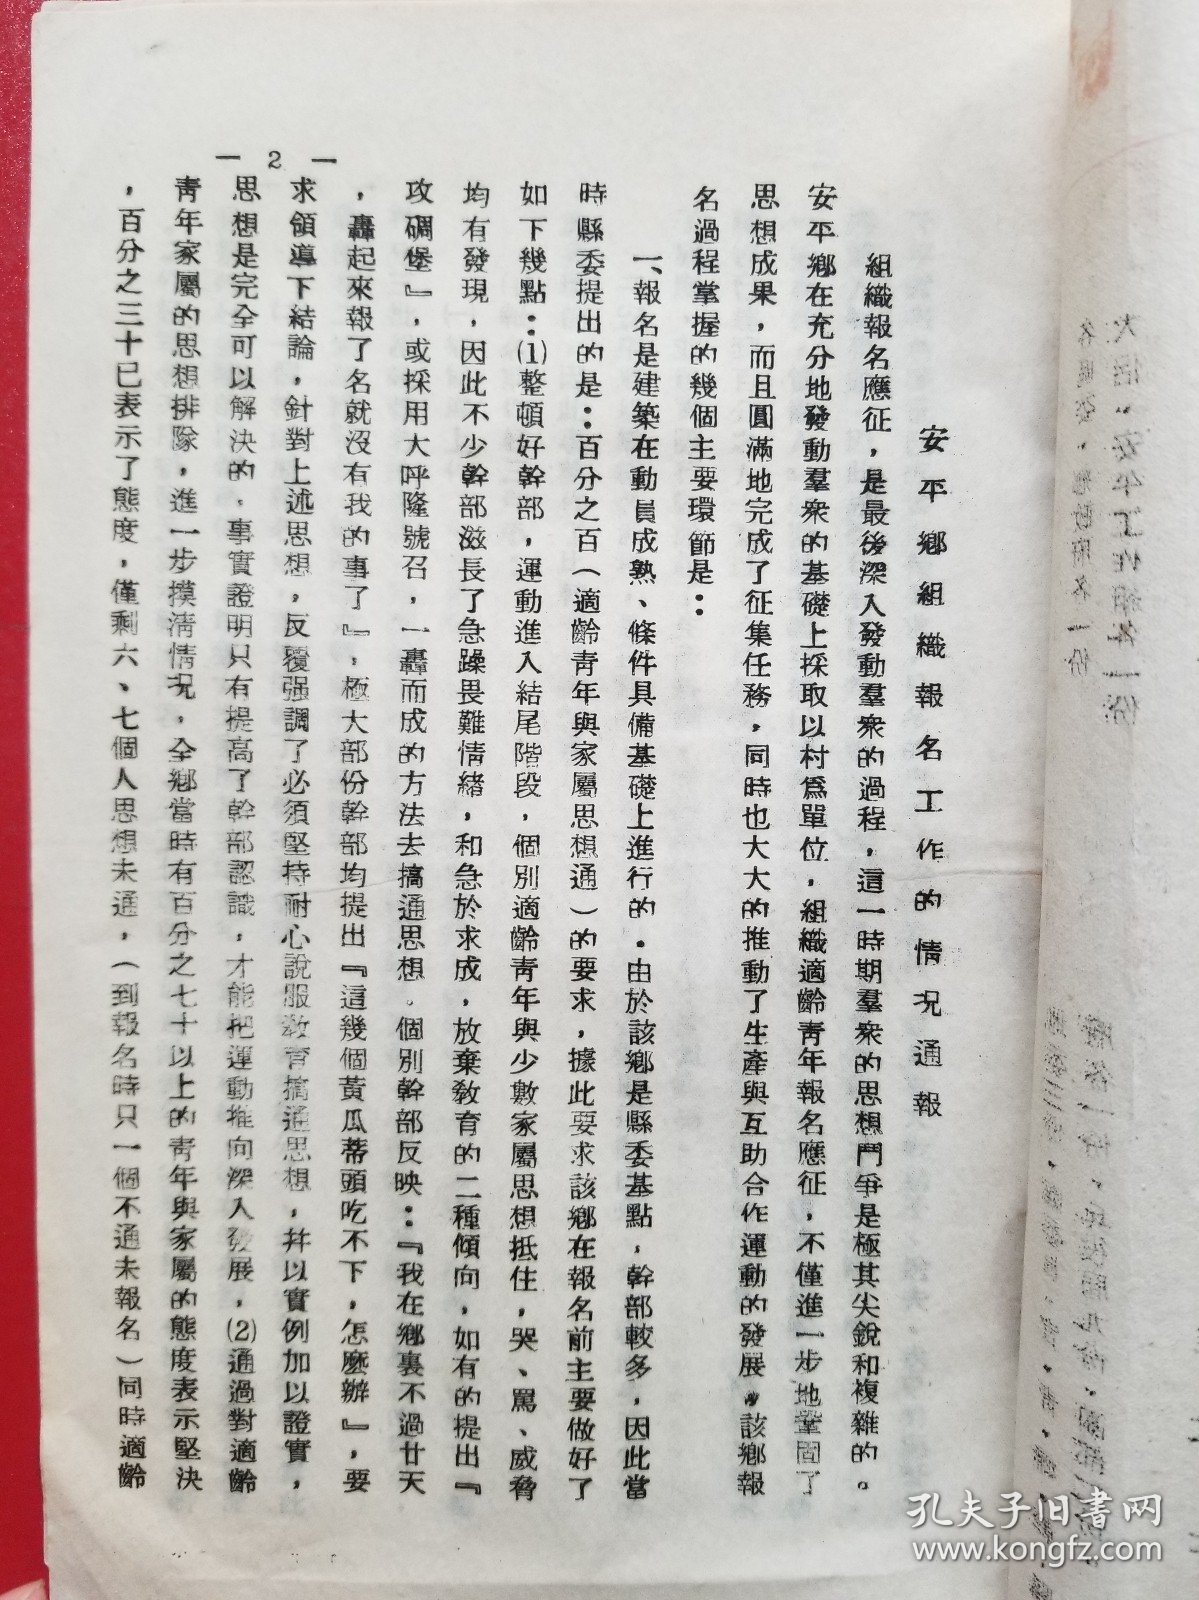 安平鄉組織報名工作的情况通報
組織報名應征，是最後深入發動羣衆的過程，這一時期羣衆的思想鬥爭是極其尖銳和複雜的。
安平鄉在充分地發動羣衆的基礎上採取以村爲單位，組織適齡靑年報名應征，不僅進一步地鞏固了
思想成果，而且圓滿地完成了征集任務，同時也大大的推動了生產與互助合作運動的發展，該鄉報
名過程掌握的幾個主要環節是：
一、報名是建築在動員成熟、條件具備基礎上進行的．由於該鄉是縣委基點，幹部較多，因此當
時縣委提出的是：百分之百（適齡靑年與家屬思想通）的要求，據此要求該鄉在報名前主要做好了
如下幾點：⑴整頓好幹部，運動進入結尾階段，個別適齡靑年與少數家屬思想抵住，哭、罵、威脅
均有發現，因此不少幹部滋長了急躁畏難情緒，和急於求成，放棄敎育的二種傾向，如有的提出『
攻碉堡』，或採用大呼隆號召，一轟而成的方法去搞通思想．個別幹部反映：『我在鄉裏不過廿天
，轟起來報了名就沒有我的事了』，極大部份幹部均提出『這幾個黃瓜蒂頭吃不下，怎麽辦』，要
求領導下結論，針對上述思想，反覆强調了必須堅持耐心說服敎育搞通思想，幷以實例加以證實，
思想是完全可以解決的．事實證明只有提高了幹部認識，才能把運動推向深入發展，⑵通過對適齡
靑年家屬的思想排隊，進一步摸清情况，全鄉當時有百分之七十以上的靑年與家屬的態度表示堅決
，百分之三十已表示了態度，僅剩六、七個人思想未通，（到報名時只一個不通未報名）同時適齡
— 2 —
孔夫子旧书网
www.kongfz.com